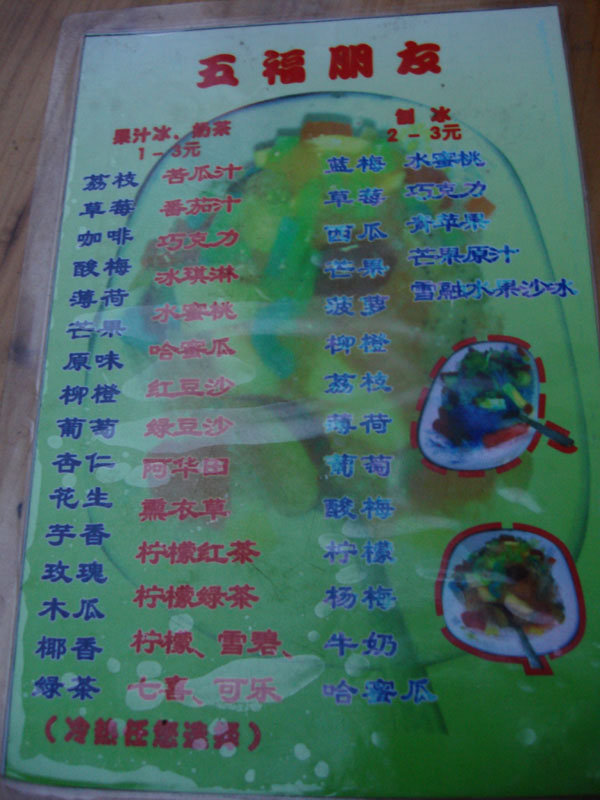 五福朋友
果汁冰、奶茶
1－3元
荔枝
草莓
咖啡
酸梅
薄荷
芒果
原味
柳橙
葡萄
杏仁
花生
芋香
玫瑰
木瓜
椰香
绿茶
苦瓜汁
番茄汁
巧克力
冰琪淋
水蜜桃
哈蜜瓜
红豆沙
绿豆沙
阿华田
熏衣草
柠檬红茶
柠檬绿茶
柠檬、雪碧、
七喜、可乐
（冷热任您选择）
刨冰
2－3元
蓝梅
草莓
西瓜
芒果
菠萝
柳橙
荔枝
薄荷
葡萄
酸梅
柠檬
杨梅
牛奶
哈蜜瓜
水蜜桃
巧克力
青苹果
芒果原汁
雪融水果沙冰